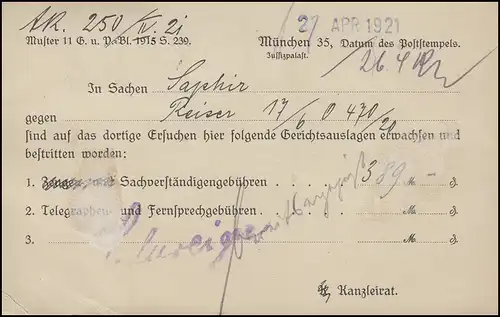 AR. 250/IV. 21
27 APR 1921
Muster 11 G. u. V.-Bl. 1915 S. 239.
München 35, Datum des Poststempels.
Justizpalast.
26. 4
In Sachen Saphir
gegen Reiser 17/6 O 470/20
sind auf das dortige Ersuchen hier folgende Gerichtsauslagen erwachsen und
bestritten worden:
1. Sachverständigengebühren . . . . 389 M. — ₰.
2. Telegraphen- und Fernsprechgebühren . . . . M. ₰.
3. M. ₰.
Kanzleirat.